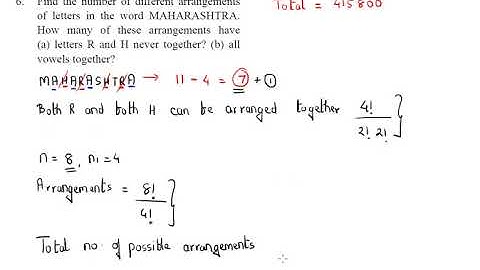 6. Find the number of different arrangements
of letters in the word MAHARASHTRA.
How many of these arrangements have
(a) letters R and H never together? (b) all
vowels together?
Total = 415800
MAHARASHTRA → 11 - 4 = 7 + 1
Both R and both H can be arranged together 4! / 2! 2! }
n = 8, n₁ = 4
Arrangements = 8! / 4! }
Total no. of possible arrangements